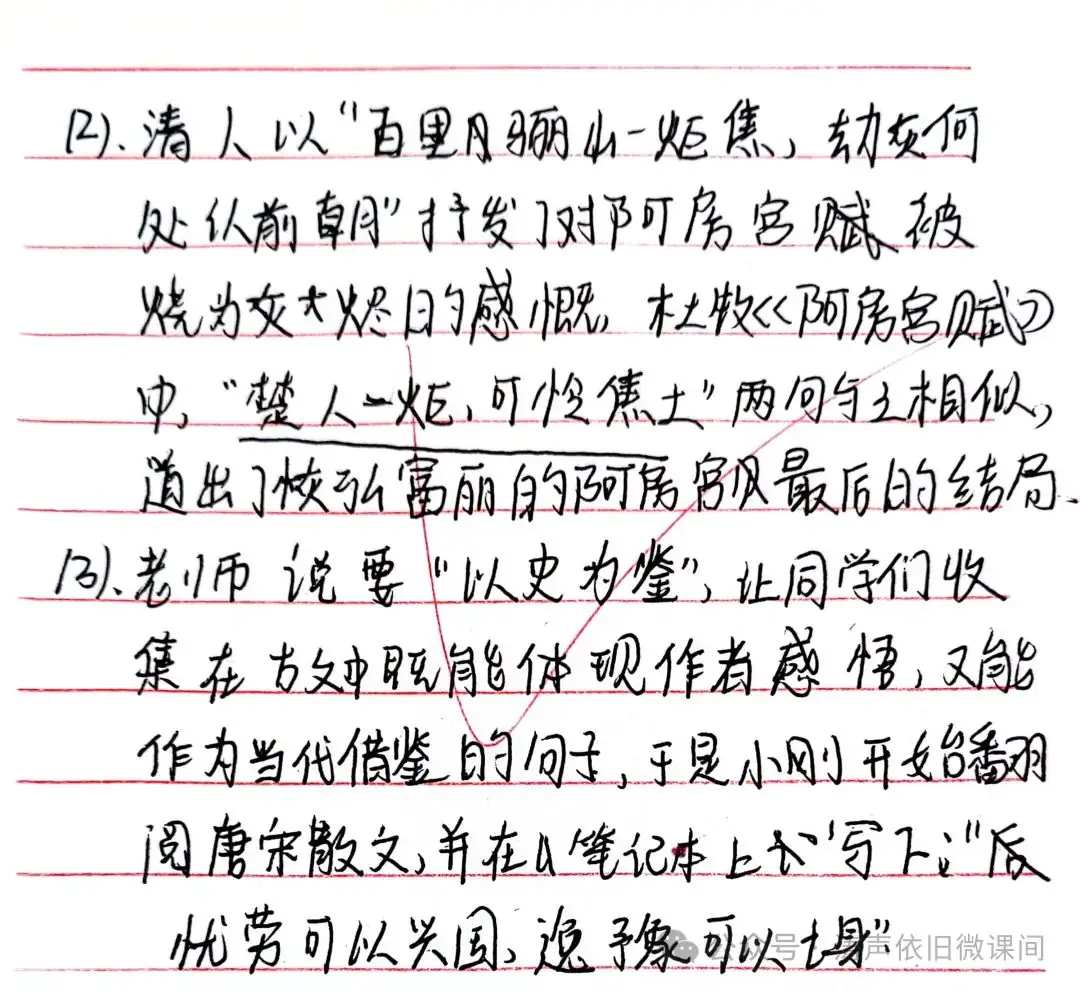 (2)、清人以“百里骊山一炬焦，劫灰何
处认前朝”抒发了对阿房宫赋被
烧为灰烬的感慨，杜牧《阿房宫赋》
中，“楚人一炬，可怜焦土”两句与之相似，
道出了恢弘富丽的阿房宫最后的结局、
(3)、老师说要“以史为鉴”，让同学们收
集在古文中既能体现作者感悟，又能
作为当代借鉴的句子，于是小刚开始翻
阅唐宋散文，并在笔记本上写下：“后
忧劳可以兴国，逸豫可以亡身”
公众号·声依旧微课间